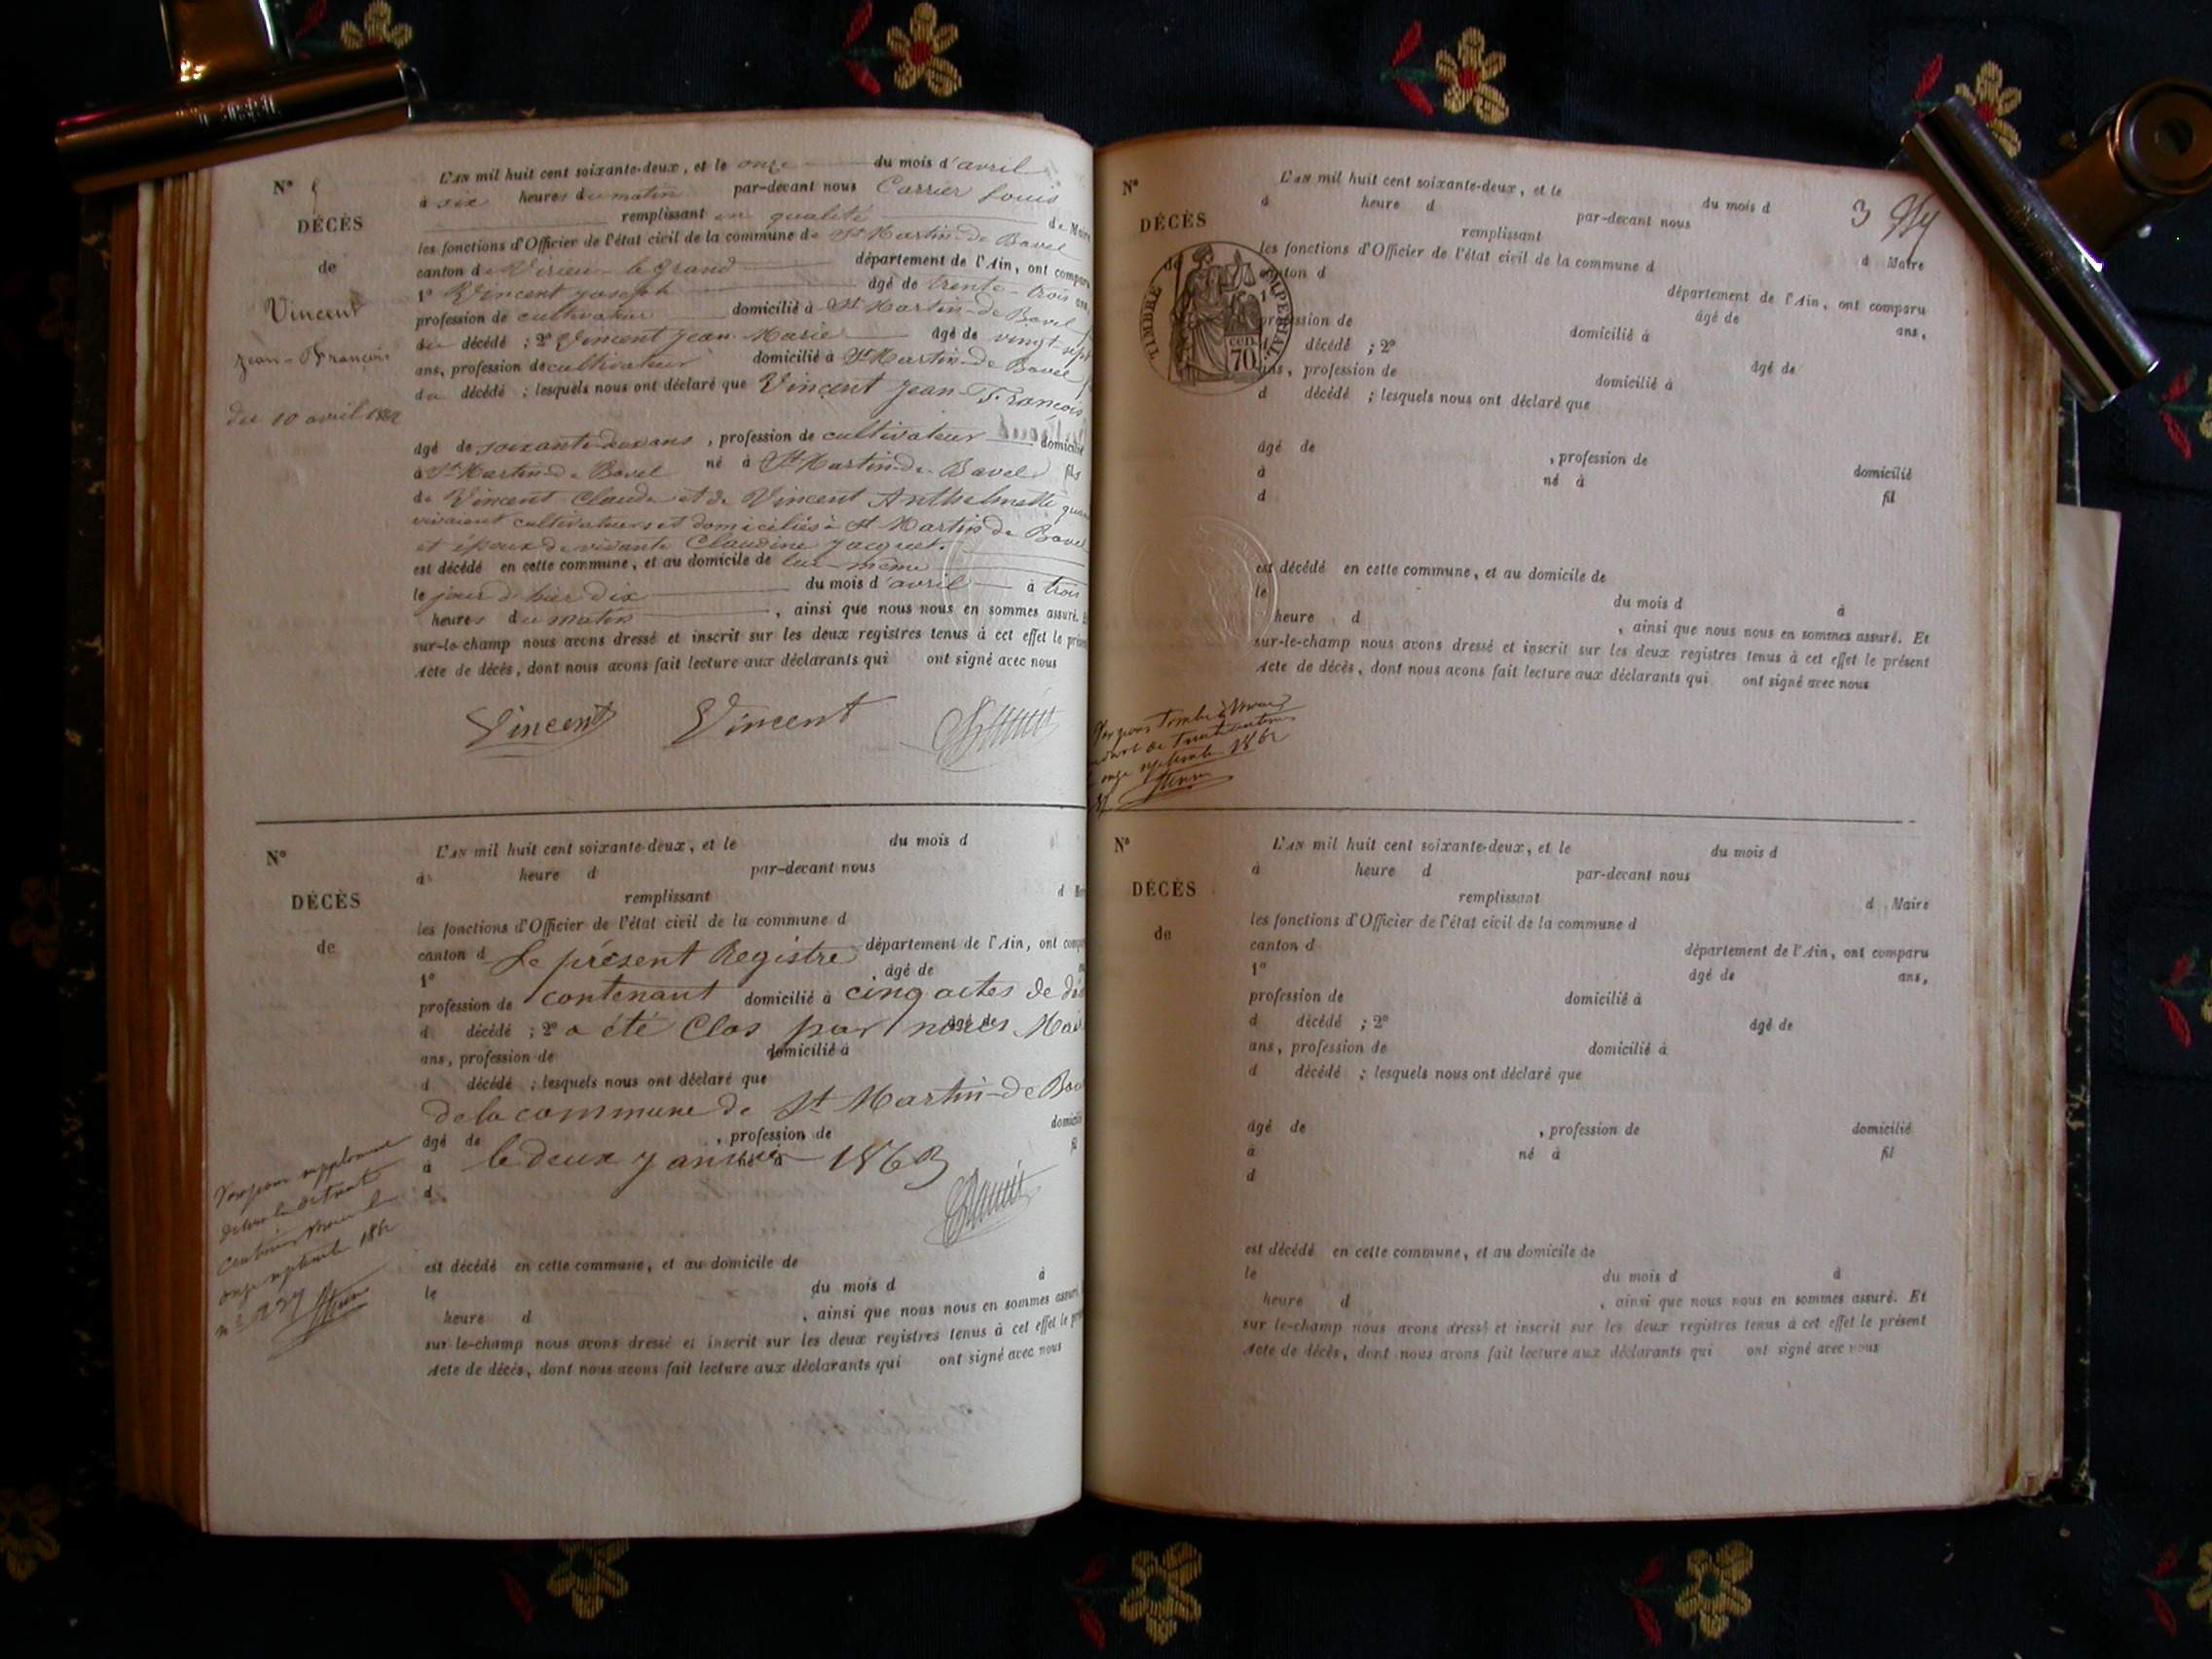 N° 5
DÉCÈS
de
Vincent
Jean-François
du 10 avril 1862
L'AN mil huit cent soixante-deux, et le onze du mois d'avril
à six heures du matin par-devant nous Carrier Louis
remplissant en qualité de Maire
les fonctions d'Officier de l'état civil de la commune de St Martin-de Bavel
canton de Virieu-le grand département de l'Ain, ont comparu
1° Vincent Joseph âgé de trente-trois ans,
profession de cultivateur domicilié à St Martin-de Bavel
du décédé ; 2° Vincent Jean-Marie âgé de vingt-sept
ans, profession de cultivateur domicilié à St Martin-de Bavel
du décédé ; lesquels nous ont déclaré que Vincent Jean-François
âgé de soixante-deux ans, profession de cultivateur domicilié
à St Martin-de Bavel né à St Martin-de-Bavel fils
de Vincent Claude et de Vincent Anthelmette quand
vivaient cultivateurs et domiciliés à St Martin de Bavel
et époux de vivante Claudine Jacquet.
est décédé en cette commune, et au domicile de lui-même
le jour d'hier dix du mois d'avril à trois
heures du matin, ainsi que nous nous en sommes assuré. E
sur-le-champ nous avons dressé et inscrit sur les deux registres tenus à cet effet le prése
Acte de décès, dont nous avons fait lecture aux déclarants qui ont signé avec nous
Vincent Vincent
N°
DÉCÈS
de
L'AN mil huit cent soixante-deux, et le du mois d
à heure d par-devant nous
remplissant d M
les fonctions d'Officier de l'état civil de la commune d
canton d Le présent Registre département de l'Ain, ont comp
1° âgé de
profession de contenant domicilié à cinq actes de dé
d décédé ; 2° a été Clos par nous âgé de Mai
ans, profession de domicilié à
d décédé ; lesquels nous ont déclaré que
de la commune de St Martin-de Bav
âgé de , profession de domicilié
à le deux Janvier né à 1863 fil
d
est décédé en cette commune, et au domicile de
le du mois d à
heure d , ainsi que nous nous en sommes assuré.
sur-le-champ nous avons dressé et inscrit sur les deux registres tenus à cet effet le pré
Acte de décès, dont nous avons fait lecture aux déclarants qui ont signé avec nous
onze septembre 1862
3
N°
DÉCÈS
de
TIMBRE IMPÉRIAL
CEN.
70
L'AN mil huit cent soixante-deux, et le du mois d
à heure d par-devant nous
remplissant d Maire
les fonctions d'Officier de l'état civil de la commune d
canton d département de l'Ain, ont comparu
1° âgé de ans,
profession de domicilié à
d décédé ; 2° âgé de
ans, profession de domicilié à
d décédé ; lesquels nous ont déclaré que
âgé de , profession de domicilié
à né à fil
d
est décédé en cette commune, et au domicile de
le du mois d à
heure d , ainsi que nous nous en sommes assuré. Et
sur-le-champ nous avons dressé et inscrit sur les deux registres tenus à cet effet le présent
Acte de décès, dont nous avons fait lecture aux déclarants qui ont signé avec nous
onze septembre 1862
N°
DÉCÈS
de
L'AN mil huit cent soixante-deux, et le du mois d
à heure d par-devant nous
remplissant d Maire
les fonctions d'Officier de l'état civil de la commune d
canton d département de l'Ain, ont comparu
1° âgé de ans,
profession de domicilié à
d décédé ; 2° âgé de
ans, profession de domicilié à
d décédé ; lesquels nous ont déclaré que
âgé de , profession de domicilié
à né à fil
d
est décédé en cette commune, et au domicile de
le du mois d à
heure d , ainsi que nous nous en sommes assuré. Et
sur le-champ nous avons dressé et inscrit sur les deux registres tenus à cet effet le présent
Acte de décès, dont nous avons fait lecture aux déclarants qui ont signé avec nous